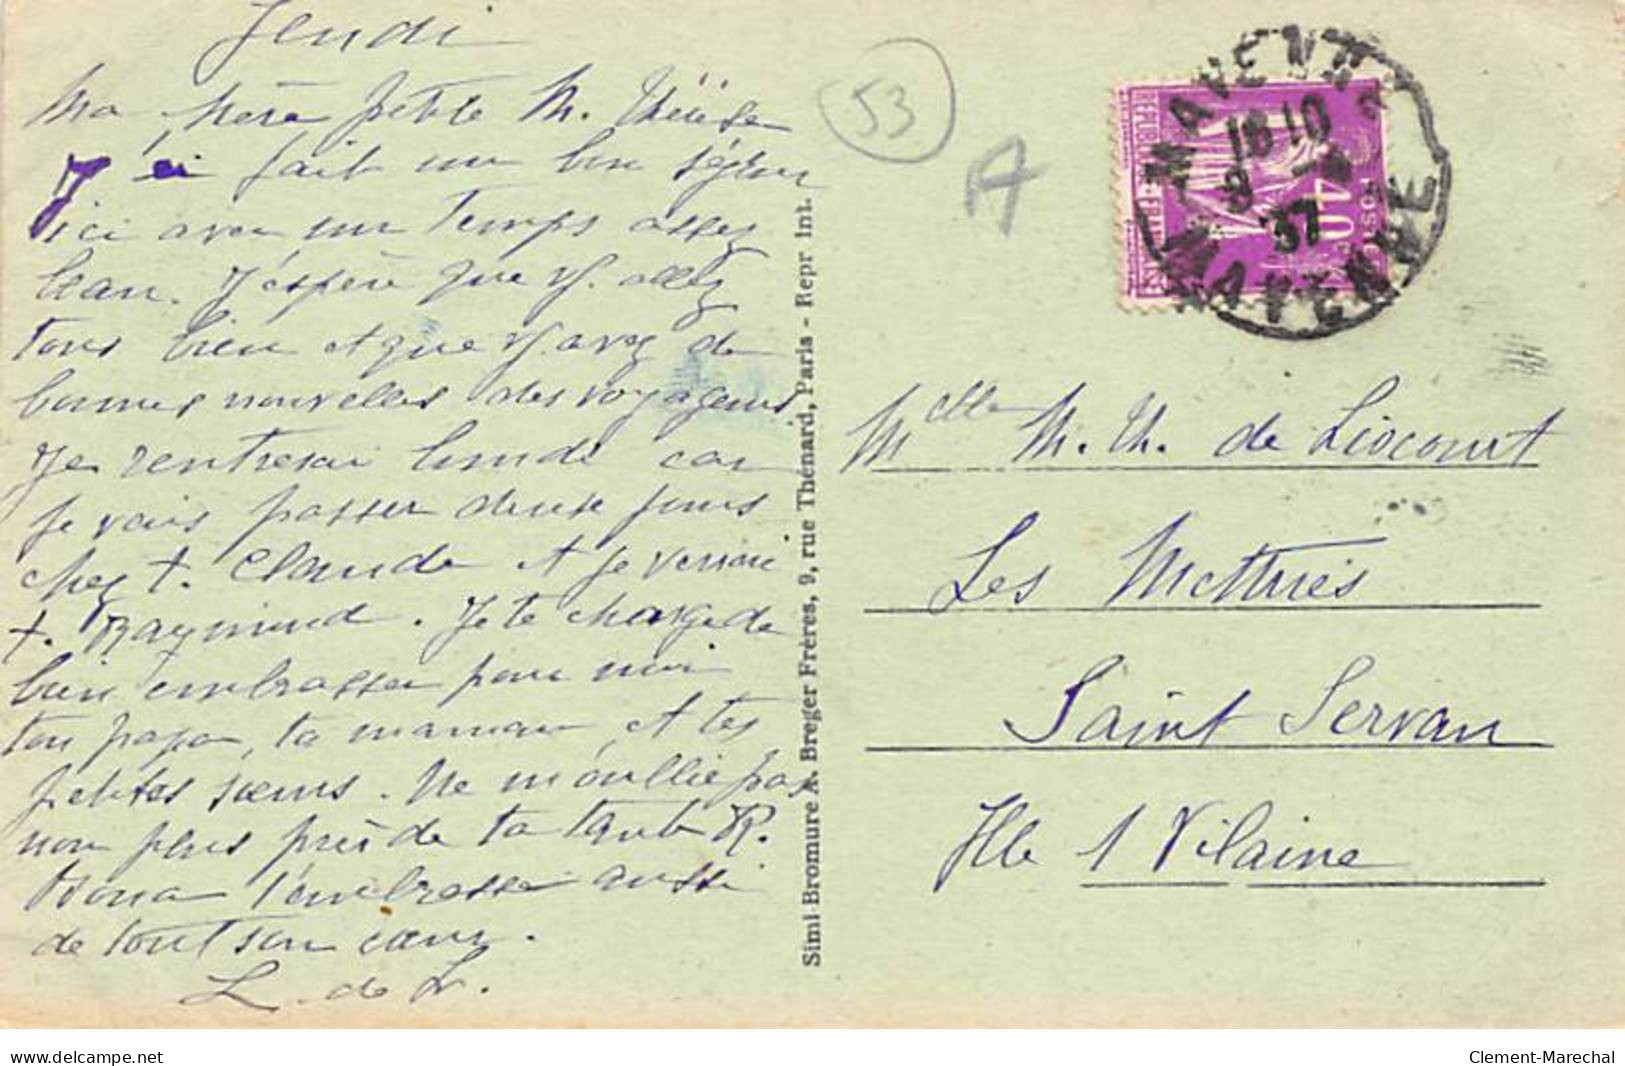 Jeudi
Ma chère petite M. Thérèse
J'ai fait un bon séjour
ici avec un temps assez
beau. J'espère que v. allez
tous bien et que v. avez de
bonnes nouvelles des voyageurs
Je rentrerai lundi car
je vais passer deux jours
chez t. Claude et je verrai
t. Raymond. Je te charge de
bien embrasser pour moi
ton papa, ta maman et tes
petites sœurs. Ne m'oublie pas
non plus près de ta tante R.
t'embrasse aussi
de tout son cœur.
L. de L.
Simi-Bromure A. Breger Frères, 9, rue Thénard, Paris - Repr Int.
53
A
MAYENNE
18 10
9
37
MAYENNE
REPUBLIQUE FRANÇAISE
POSTES
40c
Melle M. Th. de Liocourt
Les Mettries
Saint Servan
Ille & Vilaine
delcampe.net
Clement-Marechal